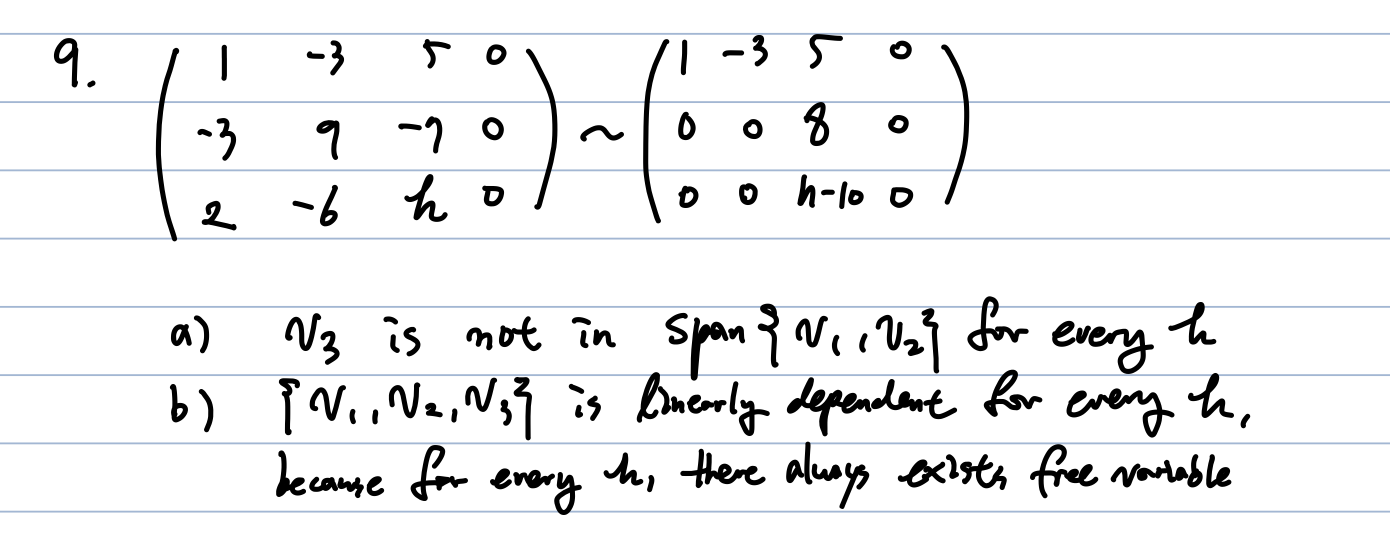 9. ( 1 -3 5 0 ) ~ ( 1 -3 5 0 )
( -3 9 -7 0 ) ( 0 0 8 0 )
( 2 -6 h 0 ) ( 0 0 h-10 0 )
a) v₃ is not in span{v₁, v₂} for every h
b) {v₁, v₂, v₃} is linearly dependent for every h,
because for every h, there always exists free variable